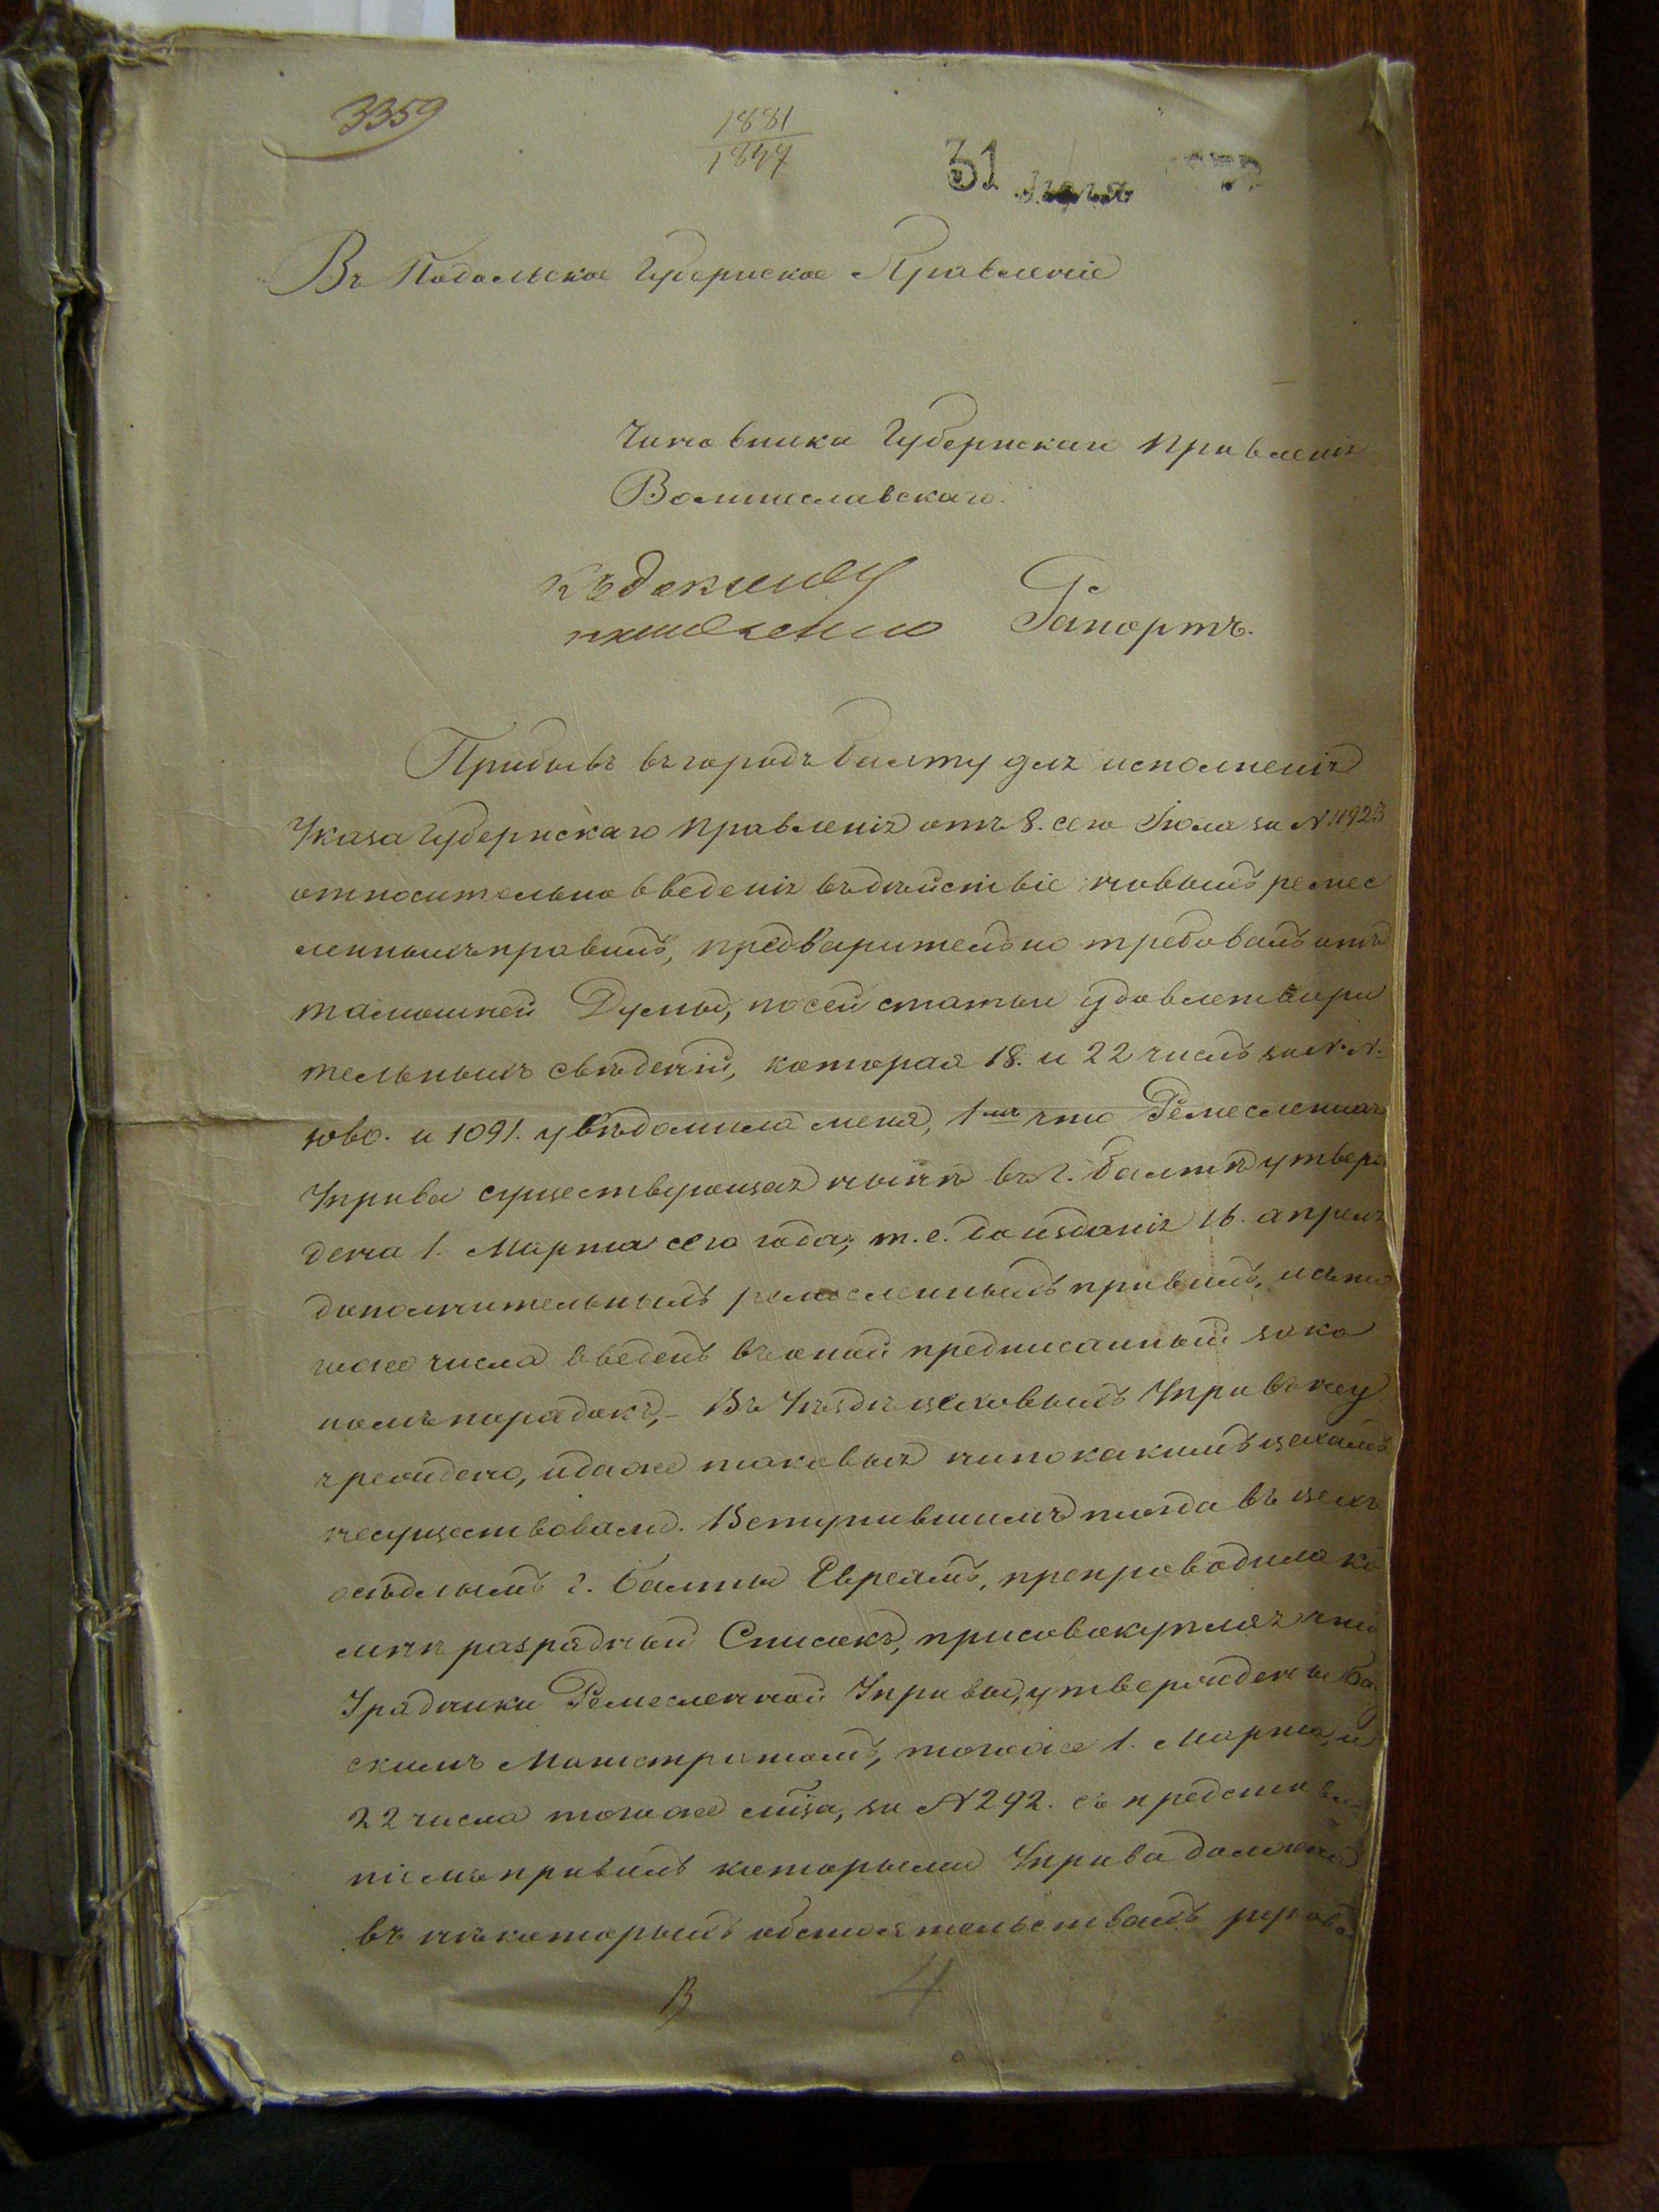 3359
1881
1844
31
Въ Подольское Губернское Правленіе
Чиновника Губернскаго Правленія
Рапортъ.
Прибывъ въ городъ Балту для исполненія
Указа Губернскаго Правленія отъ 8. сего Іюля за № 11923
относительно введенія въ дѣйствіе новыхъ ремес
ленныхъ правилъ, предварительно требовалъ отъ
тамошней Думы, по сей статьи удовлетвори
тельныхъ свѣденій, которая 18. и 22 числъ за №. №.
и 1091. увѣдомила меня, 1е что Ремесленная
Управа существующая нынѣ въ г. Балтѣ утверж
дена 1. Марта сего года, т. е. до изданія 16. апреля
дополнительныхъ ремесленныхъ правилъ, и съ то
гоже числа введенъ въ оной предписанный зако
номъ порадокъ, – Въ Уѣздѣ цеховыхъ Управъ неу
чреждено, и даже таковыя ни по какимъ цехамъ
несуществовали. Вступившимъ тогда въ цехъ
осѣдлымъ г. Балты Евреямъ, препроводила ко
мнѣ разрядный Списокъ, присовокупляя что
Урядники Ремесленной Управы, утверждены Ба
скимъ Магистратомъ, тогоже 1. Марта, и
22 числа тогоже мца, за № 292. съ представле
ніемъ правилъ которыми Управа должна
въ нѣкоторыхъ обстоятельствахъ руково
В
4